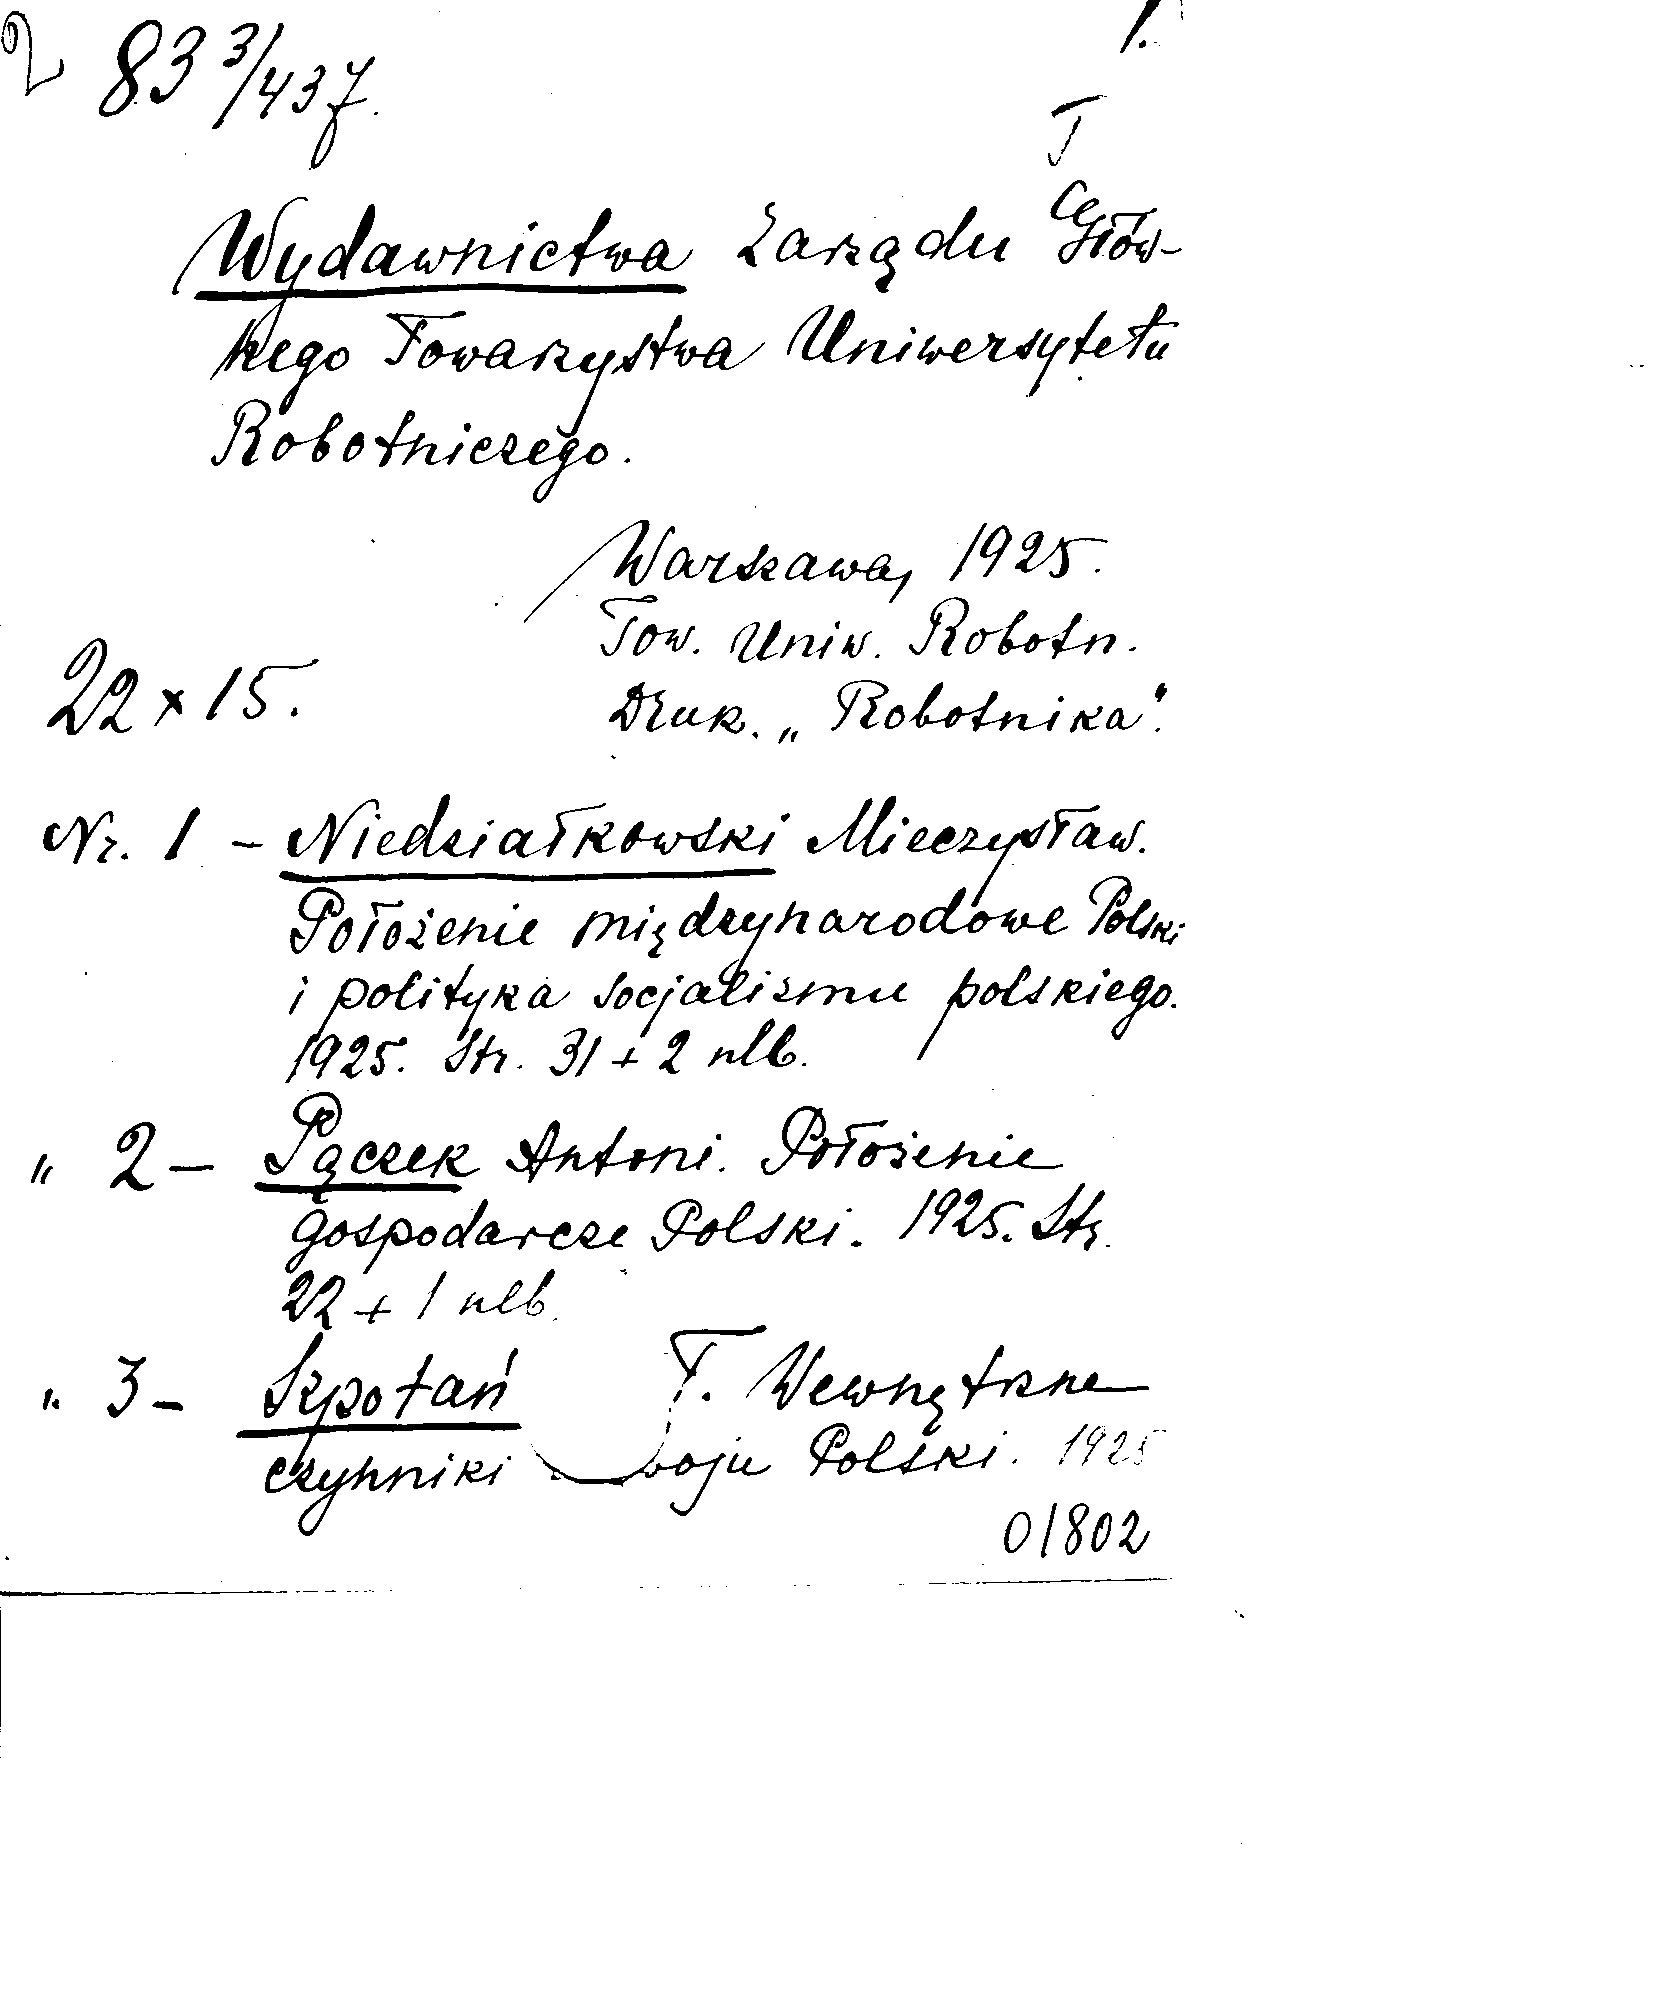 2 83 3/437.
1.
T
Wydawnictwa Zarządu Głów-
nego Towarzystwa Uniwersytetu
Robotniczego.
Warszawa, 1925.
Tow. Uniw. Robotn.
22 x 15.
Druk. „Robotnika".
Nr. 1 - Niedziałkowski Mieczysław.
Położenie międzynarodowe Polski
i polityka socjalizmu polskiego.
1925. Str. 31 + 2 nlb.
" 2 - Pączek Antoni. Położenie
gospodarcze Polski. 1925. Str.
22 + 1 nlb.
" 3 - Szpotań T. Wewnętrzne
czynniki woju Polski. 1925
01802